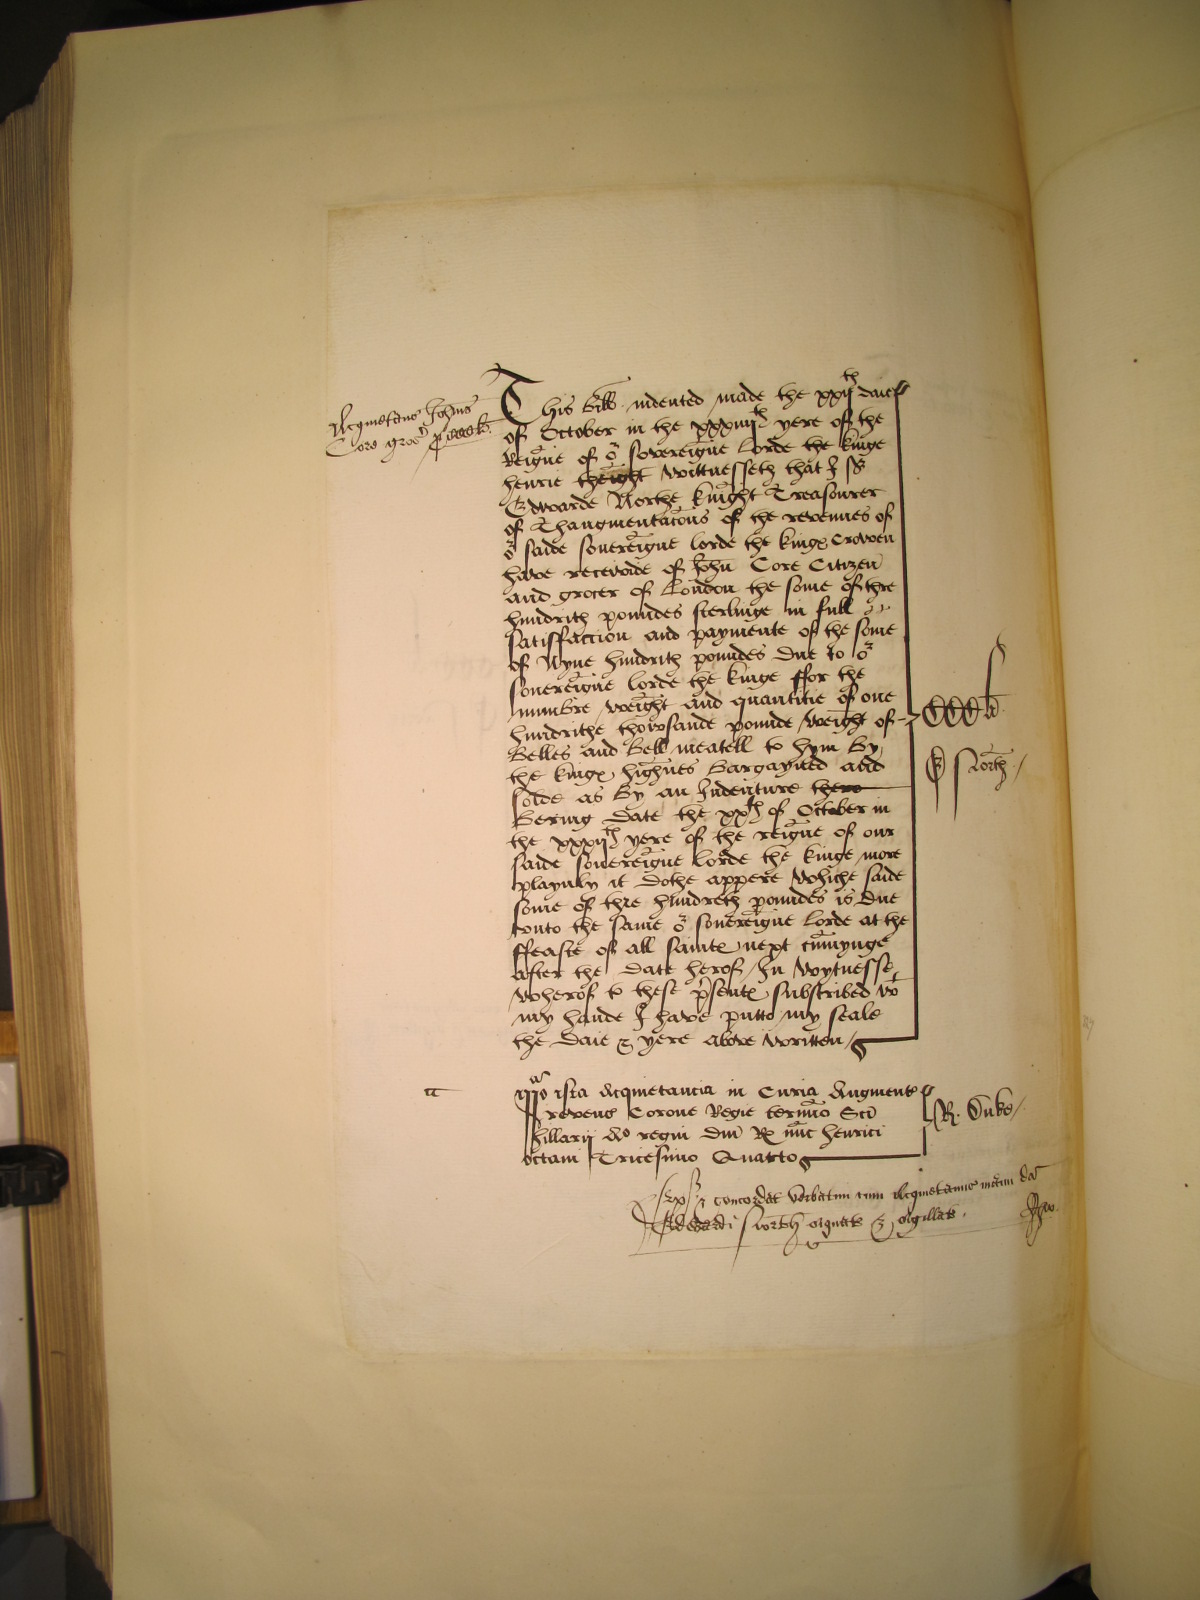 Acquietanc Johnis
Core groc
This bill indented made the xxijth daie
of October in the xxxiiijth yere of the
Reigne of or sovereigne lorde the kinge
henrie theight Wittnesseth that I Sr
Edwarde Northe knight Treasourer
of Thaugmentacons of the revenues of
or saide sovereigne lorde the kings Crowen
have receivide of John Core Citizen
and grocer of London the some of thre
hundrith poundes sterlinge in full
satisffaccion and paymente of the some
of Nyne hundrith poundes due to or
sovereigne lorde the kinge ffor the
numbre weight and quantitie of one
hundrithe thowsande pounde weight of
Belles and Bell meatell to hym by
the kings highnes Bargayned and
solde as by an Indenture
Bering date the xxth of October in
the xxxijth yere of the reigne of our
saide sovereigne lorde the kinge more
playnly it dothe appere Whiche saide
some of thre hundreth poundes is due
unto the same or sovereigne lorde at the
ffeaste of all saints next cumynge
after the date herof In Wytnesse
wherof to these psents subscribed wt
my hande I have putto my seale
the daie & yere above written
CCC li
E North
ista Acquietancia in Curia Augment
revenc Corone Regie termio Sci
hillarij Ao regni Dni Rx nuc henrici
octavi Tricesimo Quarto
R. Duke
concordat verbatim cum Acquietanc
Edwardi North signat & sigillat